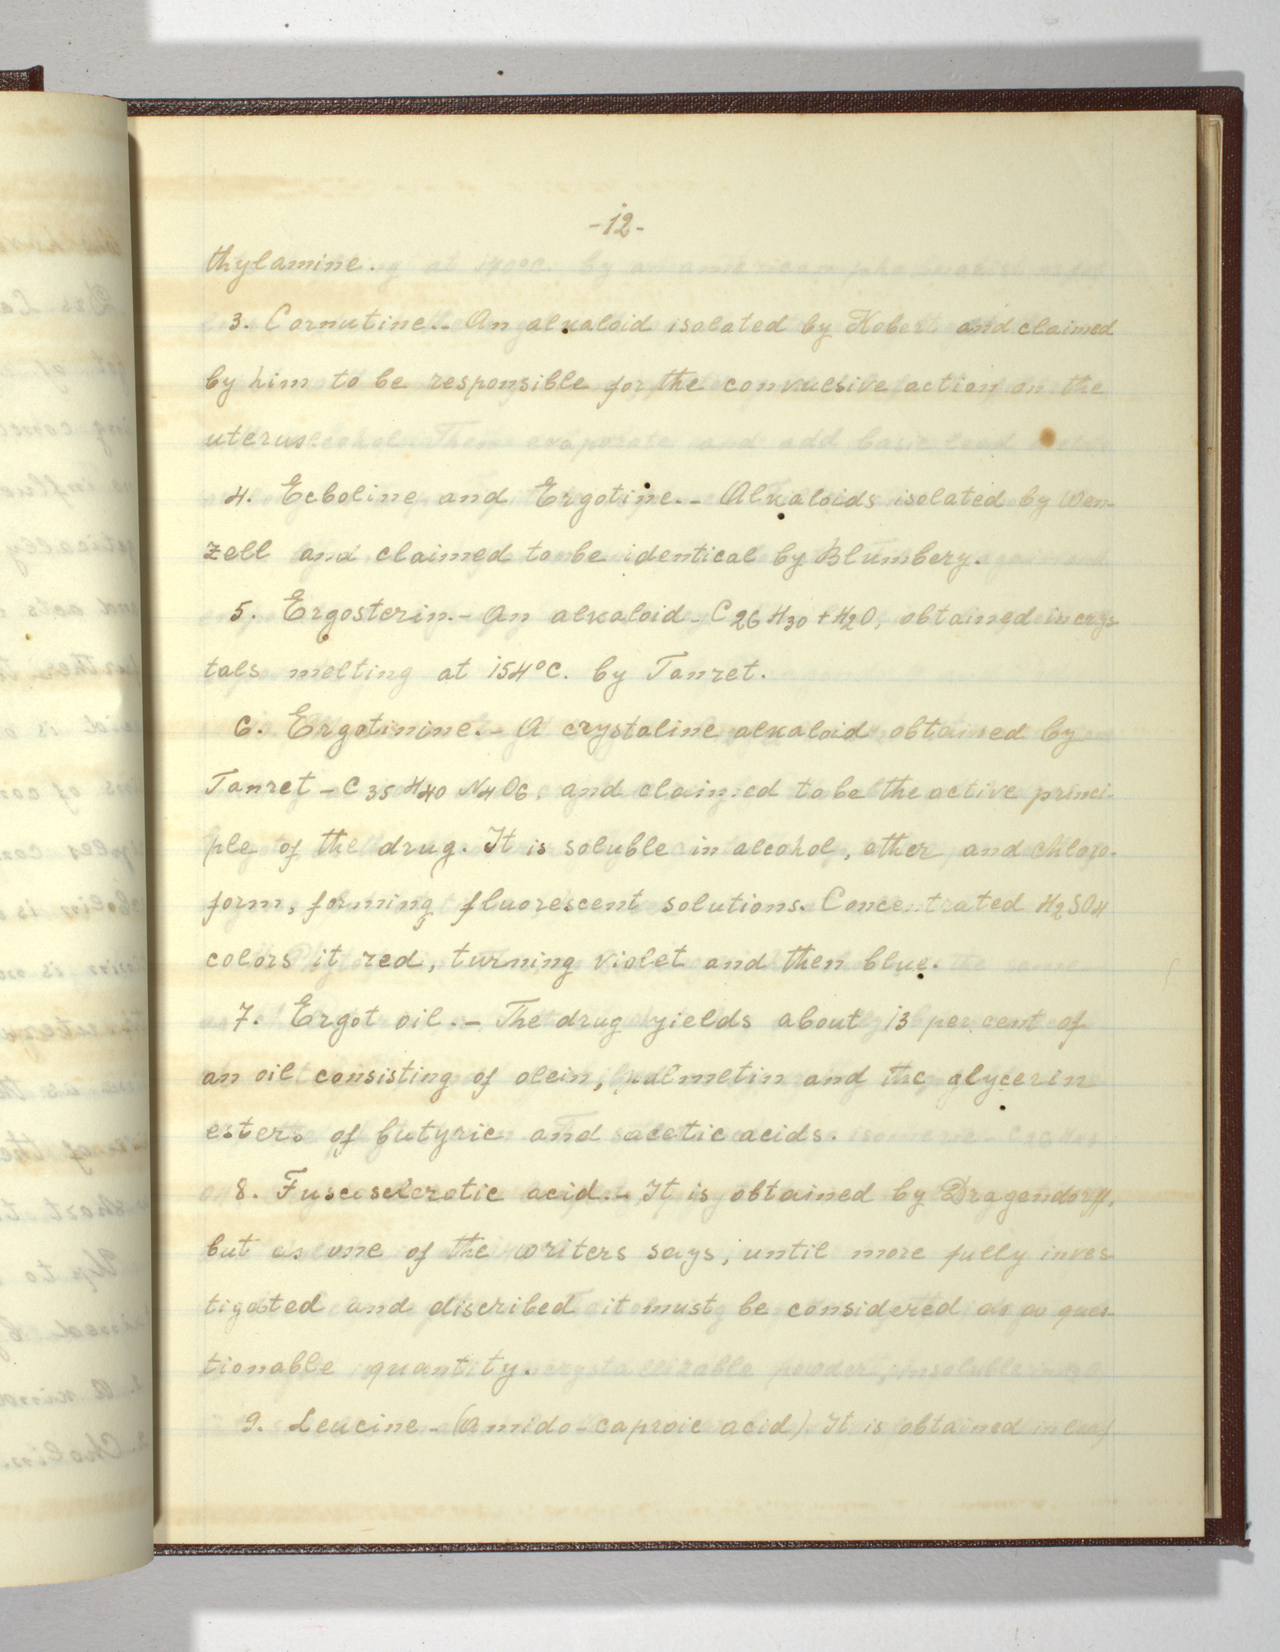 -12-
thylamine.
3. Cornutine.- An alkaloid isolated by Kobert and claimed
by him to be responsible for the convulsive action on the
uterus.
4. Ecboline and Ergotine.- Alkaloids isolated by Wen-
zell and claimed to be identical by Blumbery.
5. Ergosterin.- An alkaloid - C26 H30 + H2O, obtained in crys-
tals melting at 154°C. by Tanret.
6. Ergotinine.- A crystaline alkaloid obtained by
Tanret - C35 H40 N4 O6, and claimed to be the active princi-
ple of the drug. It is soluble in alcohol, ether and chloro-
form, forming fluorescent solutions. Concentrated H2SO4
colors it red, turning violet and then blue.
7. Ergot oil.- The drug yields about 13 per cent of
an oil consisting of olein, palmetin and the glycerin
esters of butyric and acetic acids.
8. Fuscosclerotic acid.- It is obtained by Dragendorff,
but as one of the writers says, until more fully inves-
tigated and discribed it must be considered as a ques-
tionable quantity.
9. Leucine - (Amido-caproic acid) It is obtained in leaf